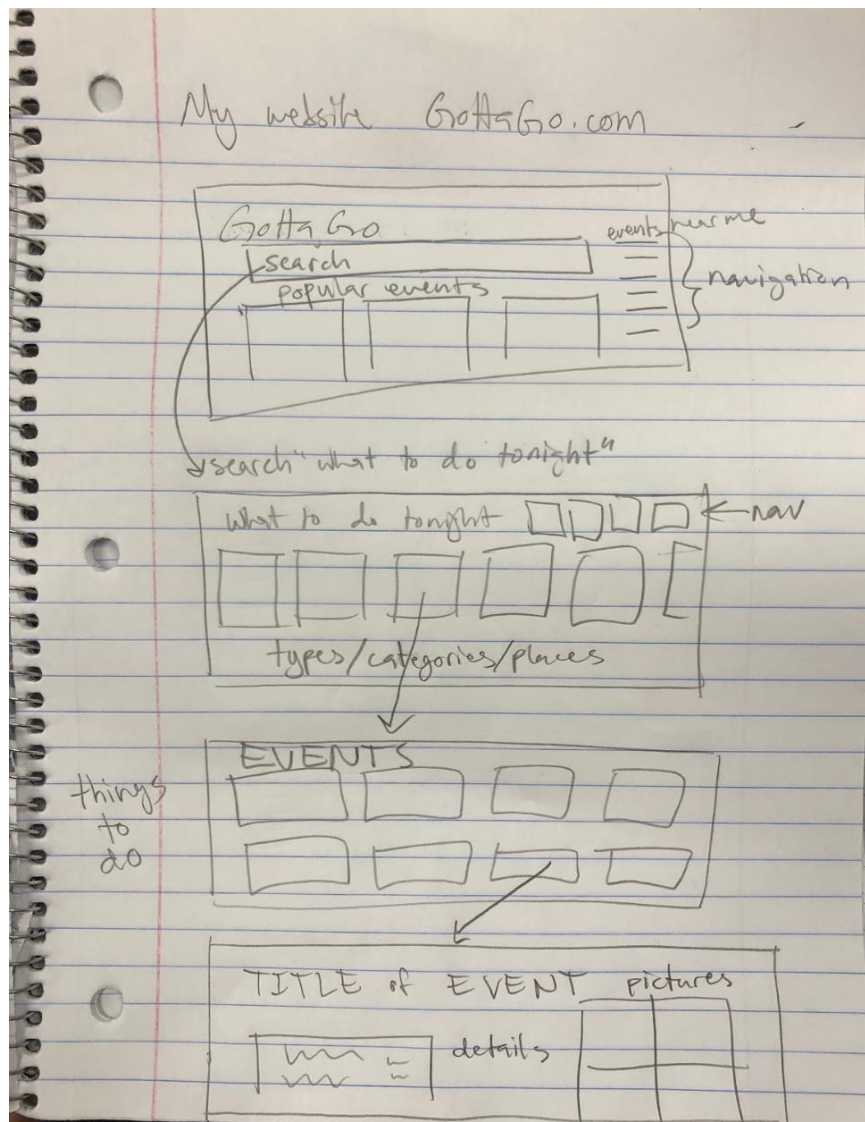 My website GottaGo.com
Gotta Go
events near me
search
navigation
popular events
search "what to do tonight"
what to do tonight
nav
types/categories/places
EVENTS
things
to
do
TITLE of EVENT pictures
details